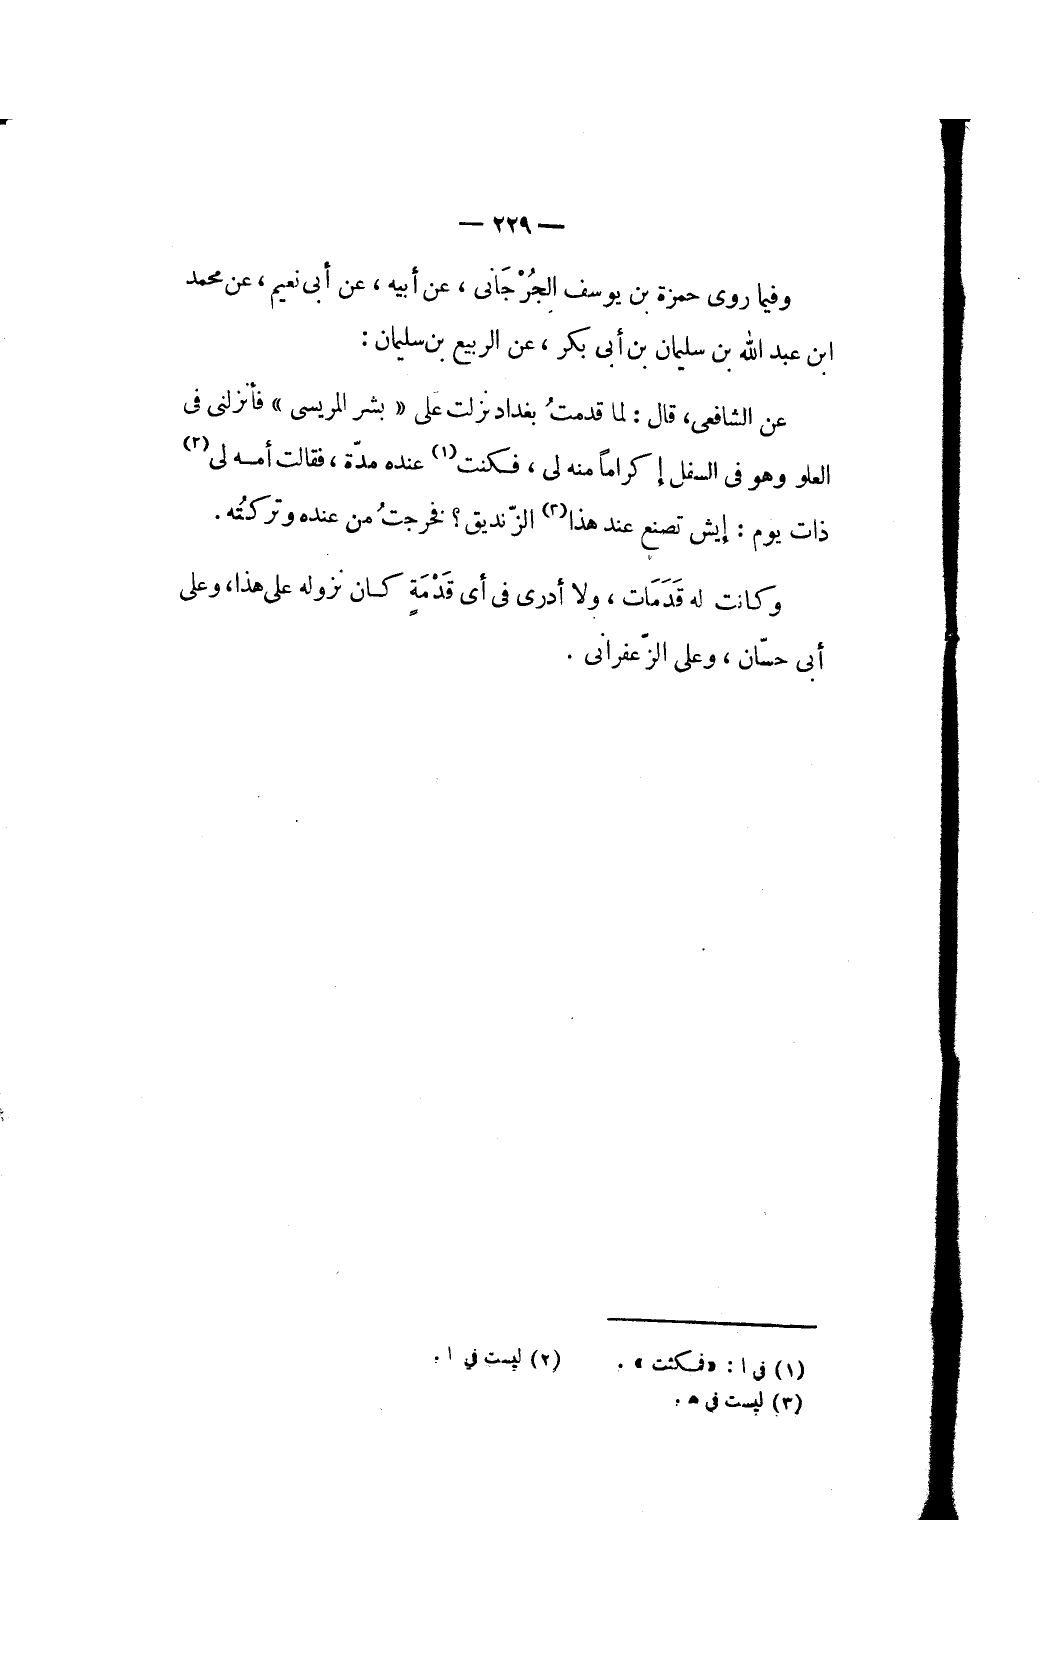 — ٢٢٩ —
وفيما روى حمزة بن يوسف الجُرْجَانى ، عن أبيه ، عن أبى نعيم ، عن محمد
ابن عبد الله بن سليمان بن أبى بكر ، عن الربيع بن سليمان :
عن الشافعى، قال : لما قدمتُ بغداد نزلت على « بشر المريسى » فأنزلنى فى
العلو وهو فى السفل إكراماً منه لى ، فكنت(١) عنده مدّة ، فقالت أمه لى(٢)
ذات يوم : إيش تصنع عند هذا(٣) الزّنديق ؟ فخرجتُ من عنده وتركتُه .
وكانت له قَدَمَات ، ولا أدرى فى أى قَدْمَةٍ كان نزوله على هذا، وعلى
أبى حسّان ، وعلى الزّعفرانى .
(١) فى ا : «فمكثت» . (٢) ليست في ا .
(٣) ليست في ھ .